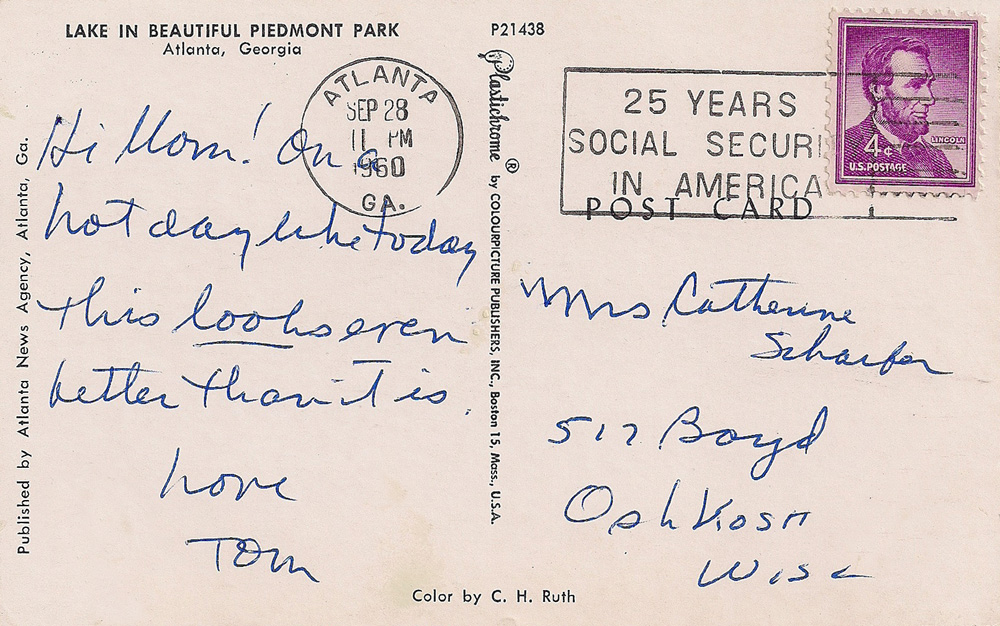 LAKE IN BEAUTIFUL PIEDMONT PARK
Atlanta, Georgia
P21438
ATLANTA
SEP 28
11 PM
1960
GA.
25 YEARS
SOCIAL SECURI
IN AMERICA
LINCOLN
4¢
U.S. POSTAGE
POST CARD
Hi Mom! On a
hot day like today
this looks even
better than it is.
Love
Tom
Mrs Catherine
Schaefer
517 Boyd
Oshkosh
Wisc
Published by Atlanta News Agency, Atlanta, Ga.
Plastichrome ® by COLOURPICTURE PUBLISHERS, INC., Boston 15, Mass., U.S.A.
Color by C. H. Ruth